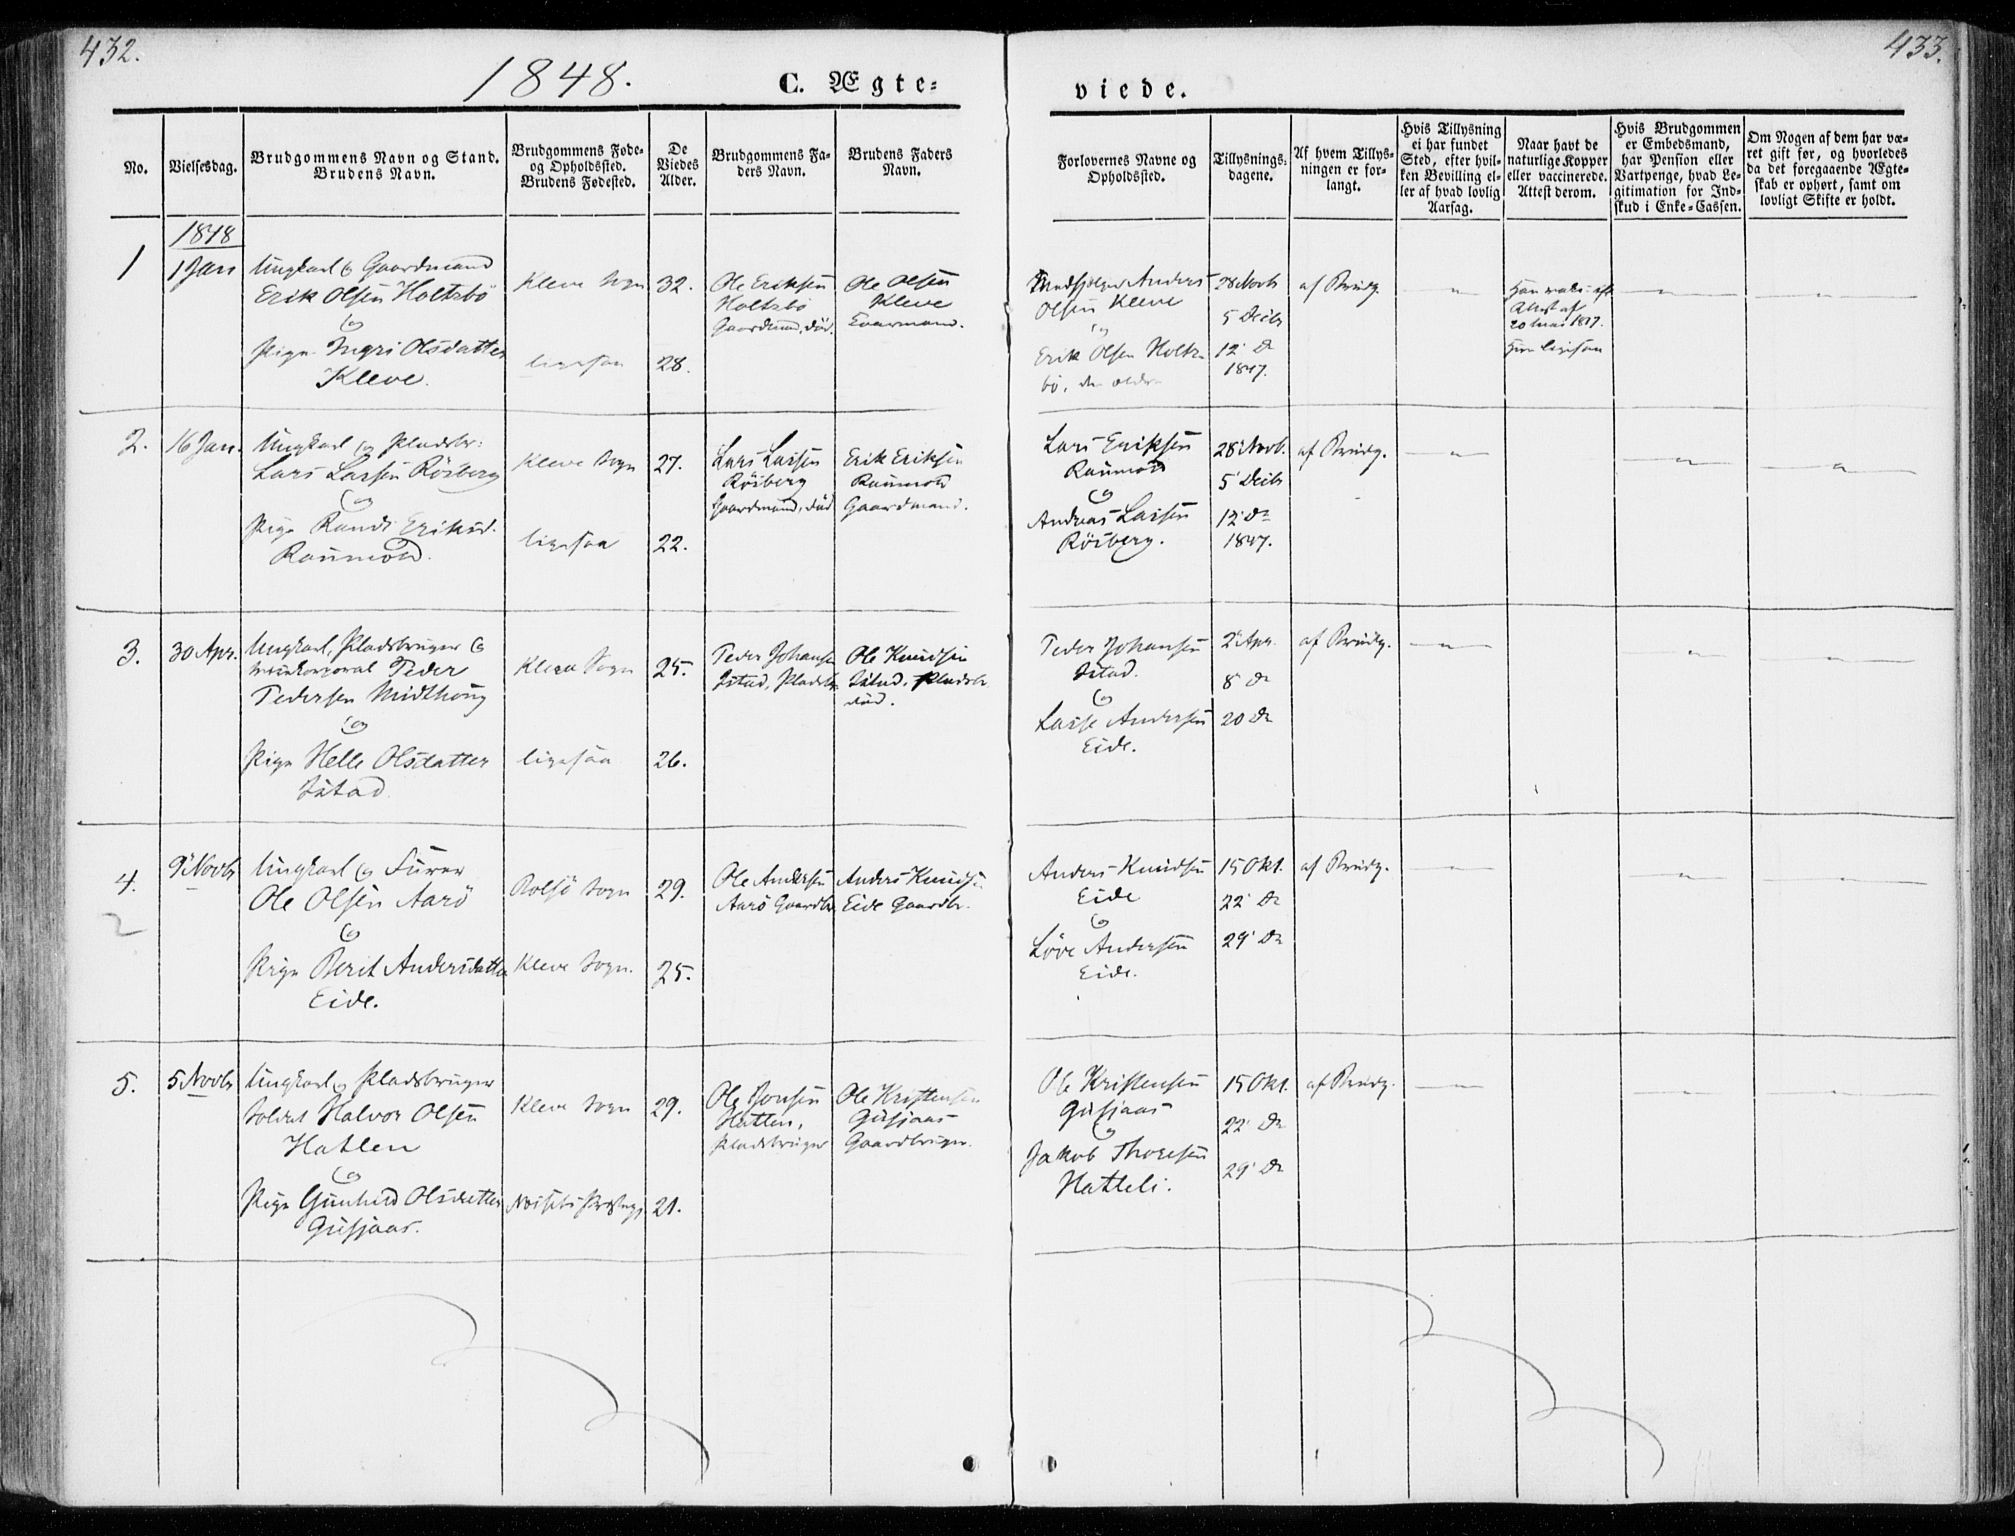 432.
433.
1848.
C. Ægte-
viede.
No.
Vielsesdag.
Brudgommens Navn og Stand.
Brudens Navn.
Brudgommens Føde-
og Opholdssted.
Brudens Fødested.
De
Viedes
Alder.
Brudgommens Fa-
ders Navn.
Brudens Faders
Navn.
Forlovernes Navne og
Opholdssted.
Tillysnings-
dagene.
Af hvem Tillys-
ningen er for-
langt.
Hvis Tillysning
ei har fundet
Sted, efter hvil-
ken Bevilling el-
ler af hvad lovlig
Aarsag.
Naar havt de
naturlige Kopper
eller vaccinerede.
Attest derom.
Hvis Brudgommen
er Embedsmand,
har Pension eller
Vartpenge, hvad Le-
gitimation for Ind-
skud i Enke-Cassen.
Om Nogen af dem har væ-
ret gift før, og hvorledes
da det foregaaende Ægte-
skab er ophørt, samt om
lovligt Skifte er holdt.
1848
1
1 Jan
Ungkarl og Gaardmand
Erik Olsen Holtsbö
og
Pige Ingri Olsdatter
Kleve.
Kleve Sogn
ligesaa
32.
28.
Ole Eriksen
Holtsbö
Gaardmand, död.
Ole Olsen
Kleve
Anders
Olsen Kleve
og
Erik Olsen Holts-
bö, den ældre
28 Novb
5 Decb
12 Do
1847.
af Brudg.
Attest af
Hun ligesaa
2.
16 Jan.
Ungkarl og Pladsbr:
Lars Larsen Rösberg
og
Pige Randi Eriksd.
Raumold.
Kleve Sogn
ligesaa
27.
22.
Lars Larsen
Rösberg
Gaardmand, död
Erik Eriksen
Raumold
Gaardmand.
Lars Eriksen
Raumold
og
Andreas Larsen
Rösberg.
28 Novb.
5 Decb
12 Do
1847.
af Brudg.
3.
30 Apr.
Ungkarl, Pladsbruger og
Peder
Pedersen Midthoug
og
Pige Helle Olsdatter
Istad
Kleve Sogn
ligesaa
25.
26.
Peder Johansen
Istad, Pladsbr
Ole Knudsen
Istad, Pladsbr.
död.
Peder Johansen
Istad.
og
Lasse Andersen
Eide.
2 Apr.
8 Do
20 Do
af Brudg.
4.
2
9 Novb
Ungkarl og Furer
Ole Olsen Aarö
og
Pige Berit Andersdatter
Eide.
Bolsö Sogn
Kleve Sogn.
29.
25.
Ole Andersen
Aarö Gaardbr.
Anders Knudsen
Eide Gaardbr.
Anders Knudsen
Eide
og
Löve Andersen
Eide.
15 Okt.
22 Do
29 Do
af Brudg.
5.
5 Novb
Ungkarl og Pladsbruger
Soldat Halvor Olsen
Hatlen
og
Pige Gunhild Olsdatter
Gusjaas.
Kleve Sogn
29.
21.
Ole Jonsen
Hatlen,
Pladsbruger
Ole Kristensen
Gusjaas
Gaardbruger.
Ole Kristensen
Gusjaas
og
Jakob Thoresen
Hatteli.
15 Okt.
22 Do
29 Do
af Brudg.